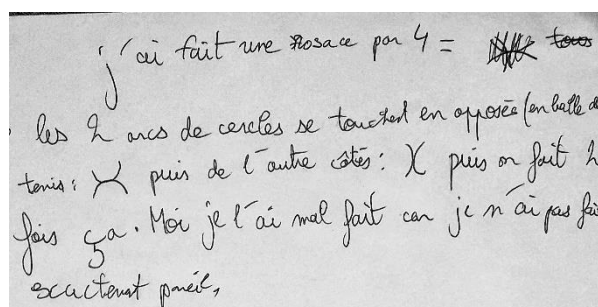 j'ai fait une rosace par 4 = tous
les 2 arcs de cercles se touchent en opposée (en balle de
tenis : puis de l'autre côtés : puis on fait 2
fois ça. Moi je l'ai mal fait car je n'ai pas fai
exactemt pareil,